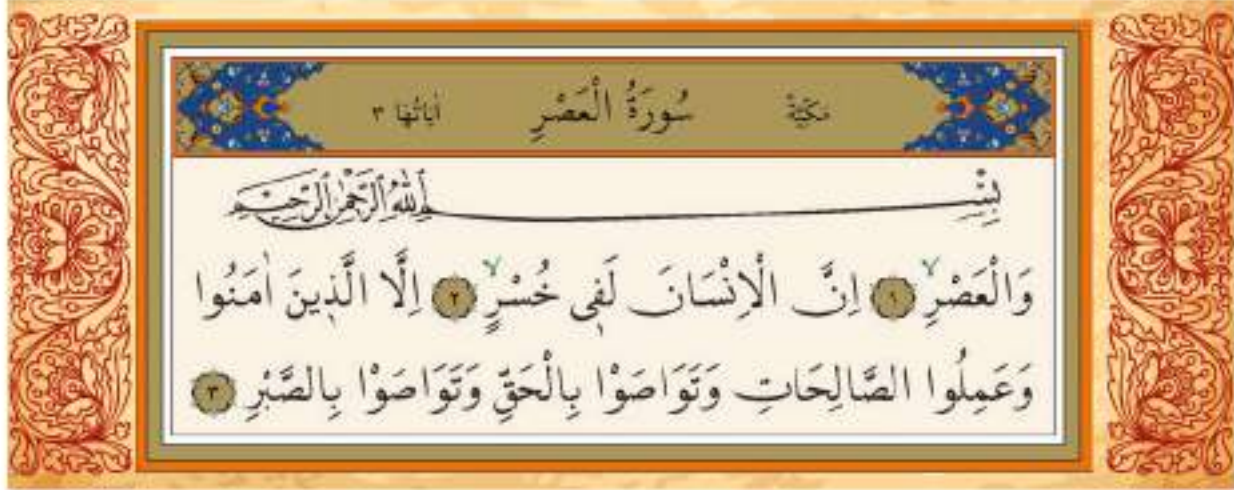 مَكِّيَّةٌ سُورَةُ الْعَصْرِ اٰيَاتُهَا ٣
بِسْمِ ٱللّٰهِ ٱلرَّحْمٰنِ ٱلرَّحِيمِ
وَالْعَصْرِۙ ١ اِنَّ الْاِنْسَانَ لَف۪ى خُسْرٍۙ ٢ اِلَّا الَّذ۪ينَ اٰمَنُوا
وَعَمِلُوا الصَّالِحَاتِ وَتَوَاصَوْا بِالْحَقِّ وَتَوَاصَوْا بِالصَّبْرِ ٣